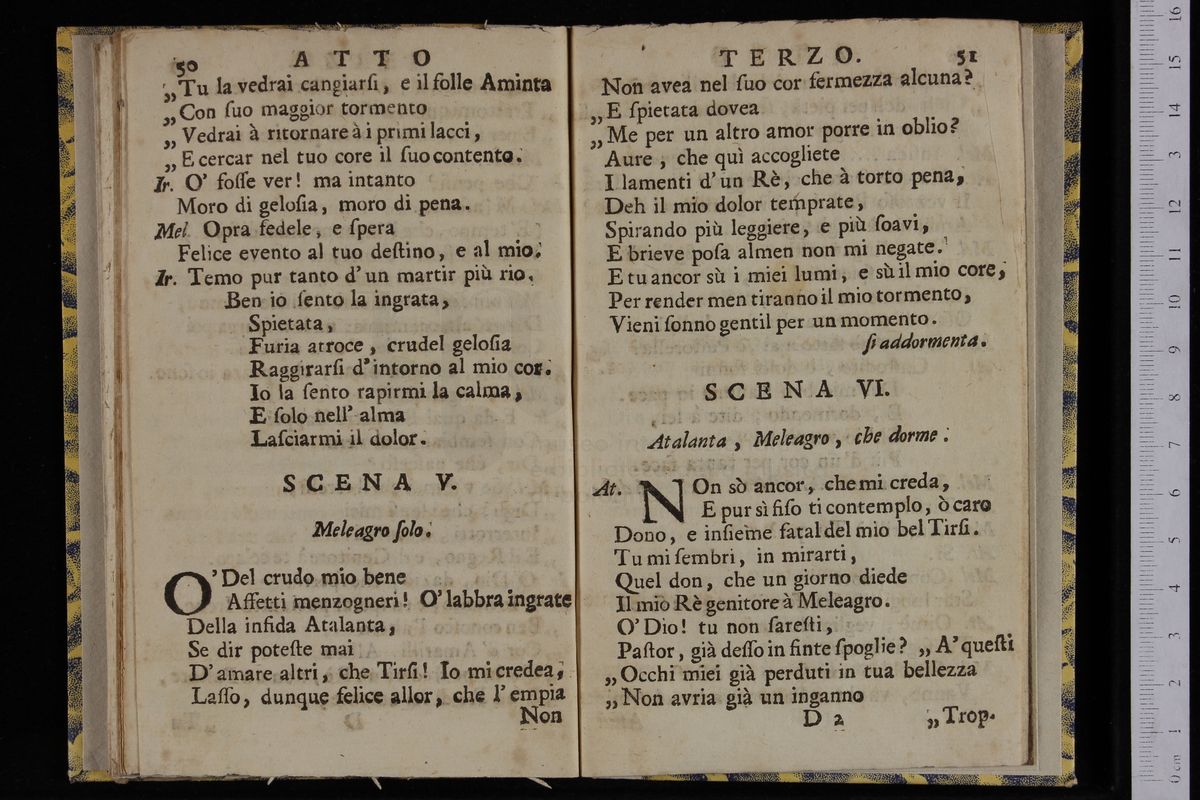 50 ATTO
„Tu la vedrai cangiarſi, e il folle Aminta
„Con ſuo maggior tormento
„Vedrai à ritornare à i primi lacci,
„E cercar nel tuo core il ſuo contento.
Ir. O' foſſe ver! ma intanto
Moro di geloſia, moro di pena.
Mel. Opra fedele, e ſpera
Felice evento al tuo deſtino, e al mio.
Ir. Temo pur tanto d'un martir più rio.
Ben io ſento la ingrata,
Spietata,
Furia atroce, crudel geloſia
Raggirarſi d'intorno al mio cor.
Io la ſento rapirmi la calma,
E ſolo nell' alma
Laſciarmi il dolor.
SCENA V.
Meleagro ſolo.
O' Del crudo mio bene
Affetti menzogneri! O' labbra ingrate
Della infida Atalanta,
Se dir poteſte mai
D'amare altri, che Tirſi! Io mi credea,
Laſſo, dunque felice allor, che l'empia
Non
TERZO. 51
Non avea nel ſuo cor fermezza alcuna?
„E ſpietata dovea
„Me per un altro amor porre in oblio?
Aure, che quì accogliete
I lamenti d'un Rè, che à torto pena,
Deh il mio dolor temprate,
Spirando più leggiere, e più ſoavi,
E brieve poſa almen non mi negate.
E tu ancor sù i miei lumi, e sù il mio core,
Per render men tiranno il mio tormento,
Vieni ſonno gentil per un momento.
ſi addormenta.
SCENA VI.
Atalanta, Meleagro, che dorme.
At. NOn sò ancor, che mi creda,
E pur sì fiſo ti contemplo, ò caro
Dono, e inſieme fatal del mio bel Tirſi.
Tu mi ſembri, in mirarti,
Quel don, che un giorno diede
Il mio Rè genitore à Meleagro.
O' Dio! tu non ſareſti,
Paſtor, già deſſo in finte ſpoglie? „A' queſti
„Occhi miei già perduti in tua bellezza
„Non avria già un inganno
D 2 „Trop-
0 cm 1 2 3 4 5 6 7 8 9 10 11 12 3 14 15 16